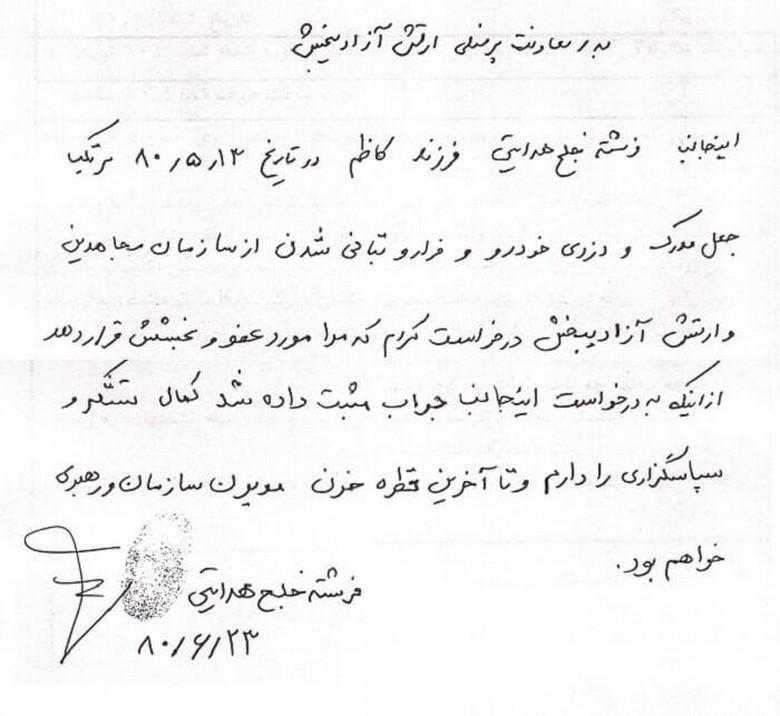 به: معاونت پرسنلی ارتش آزادیبخش
اینجانب فرشته خلج هدایتی فرزند کاظم در تاریخ ۸۰/۵/۱۳ مرتکب
جعل مدرک و دزدی خودرو و فرار و تبانی شدن از سازمان مجاهدین
و ارتش آزادیبخش درخواست کردم که مرا مورد عفو و بخشش قرار دهد
از اینکه به درخواست اینجانب جواب مثبت داده شد کمال تشکر و
سپاسگزاری را دارم و تا آخرین قطره خون مدیون سازمان و رهبری
خواهم بود.
فرشته خلج هدایتی
۸۰/۶/۲۳